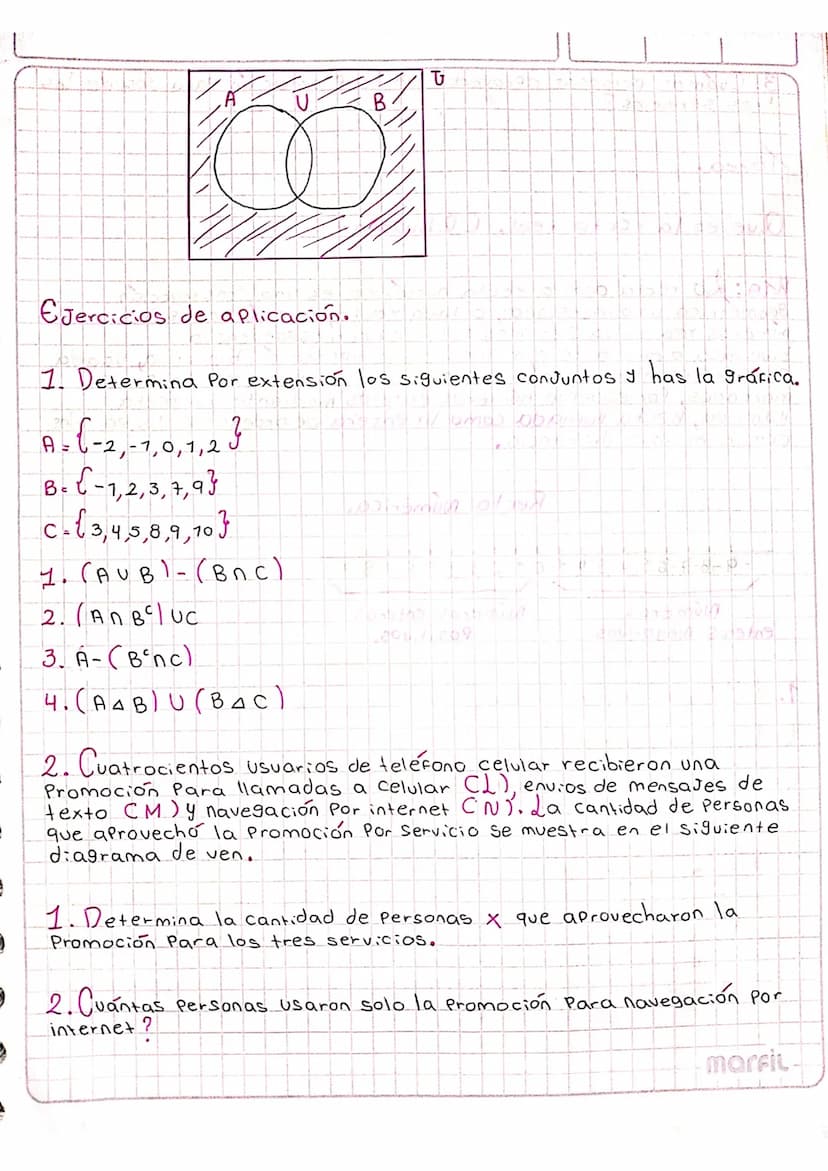 U
A U B
Ejercicios de aplicación.
1. Determina Por extensión los siguientes conjuntos y has la gráfica.
A = {-2,-1,0,1,2}
B = {-1,2,3,7,9}
C = {3,4,5,8,9,10}
1. (A ∪ B) - (B ∩ C)
2. (A ∩ Bᶜ) ∪ C
3. A - (Bᶜ ∩ C)
4. (A △ B) ∪ (B △ C)
2. Cuatrocientos usuarios de teléfono celular recibieron una
Promoción Para llamadas a celular (L), envios de mensajes de
texto (M) y navegación Por internet (N). La cantidad de Personas
que aprovechó la Promoción Por Servicio se muestra en el siguiente
diagrama de ven.
1. Determina la cantidad de Personas x que aprovecharon la
Promoción Para los tres servicios.
2. Cuántas Personas usaron solo la Promoción Para navegación Por
internet?
marfil